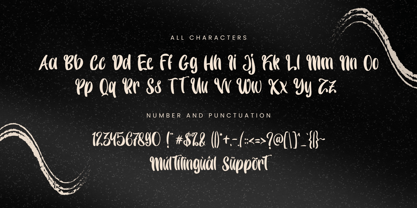 ALL CHARACTERS
Aa Bb Cc Dd Ee Ff Gg Hh Ii Jj Kk Ll Mm Nn Oo
Pp Qq Rr Ss TT Uu Vv Ww Xx Yy Zz
NUMBER AND PUNCTUATION
1234567890 !"#$%& ()*+,-./:;<=>?@[\]^_`{|}~
Multilingual Support